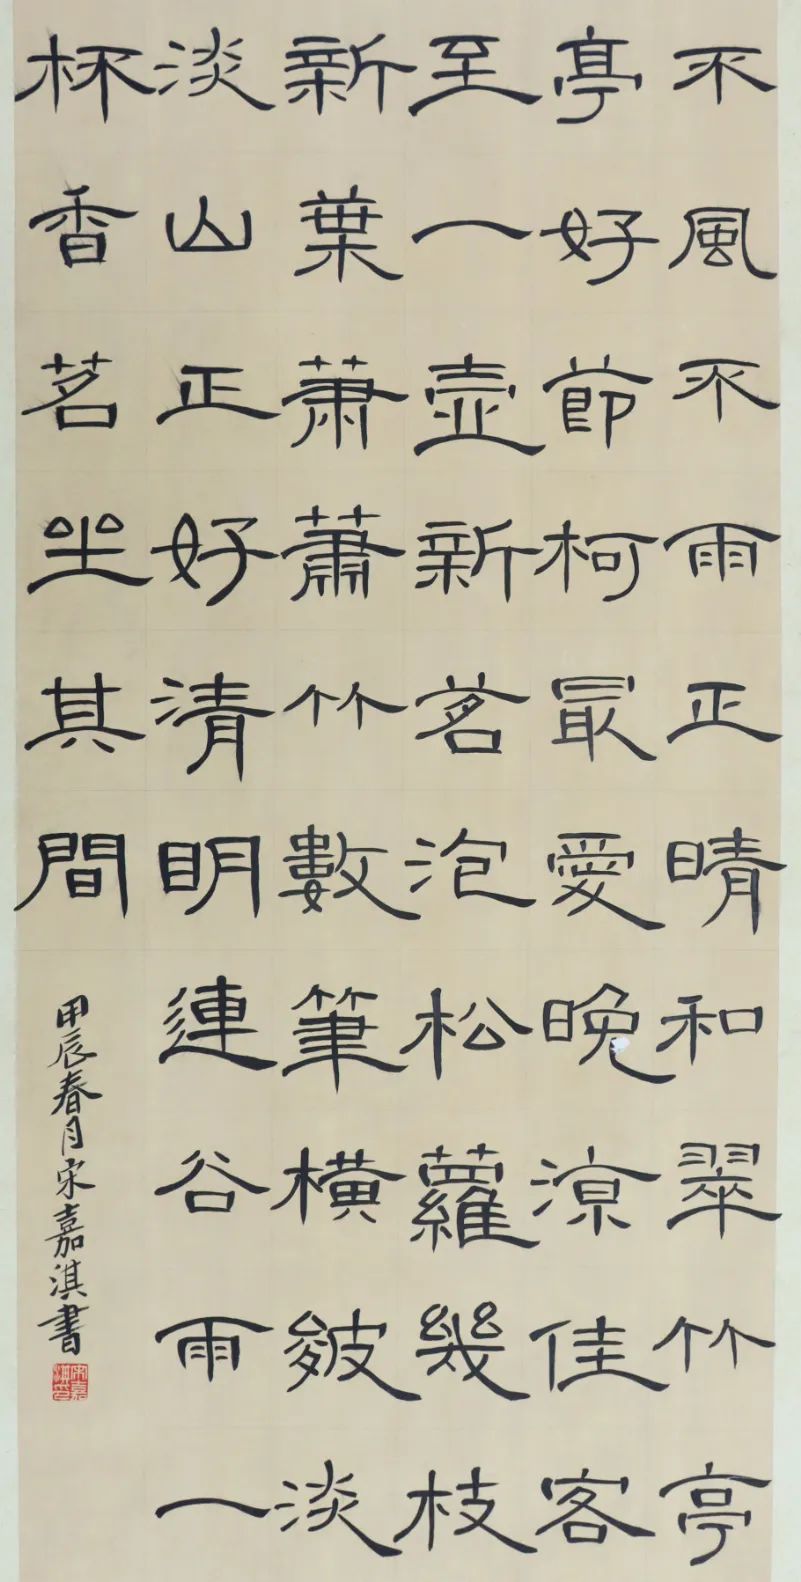 不風不雨正晴和翠竹亭
亭好節柯最愛晚涼佳客
至一壺新茗泡松蘿幾枝
新葉蕭蕭竹數筆橫皴淡
淡山正好清明連谷雨一
杯香茗坐其間
甲辰春月宋嘉淇書
宋嘉淇印